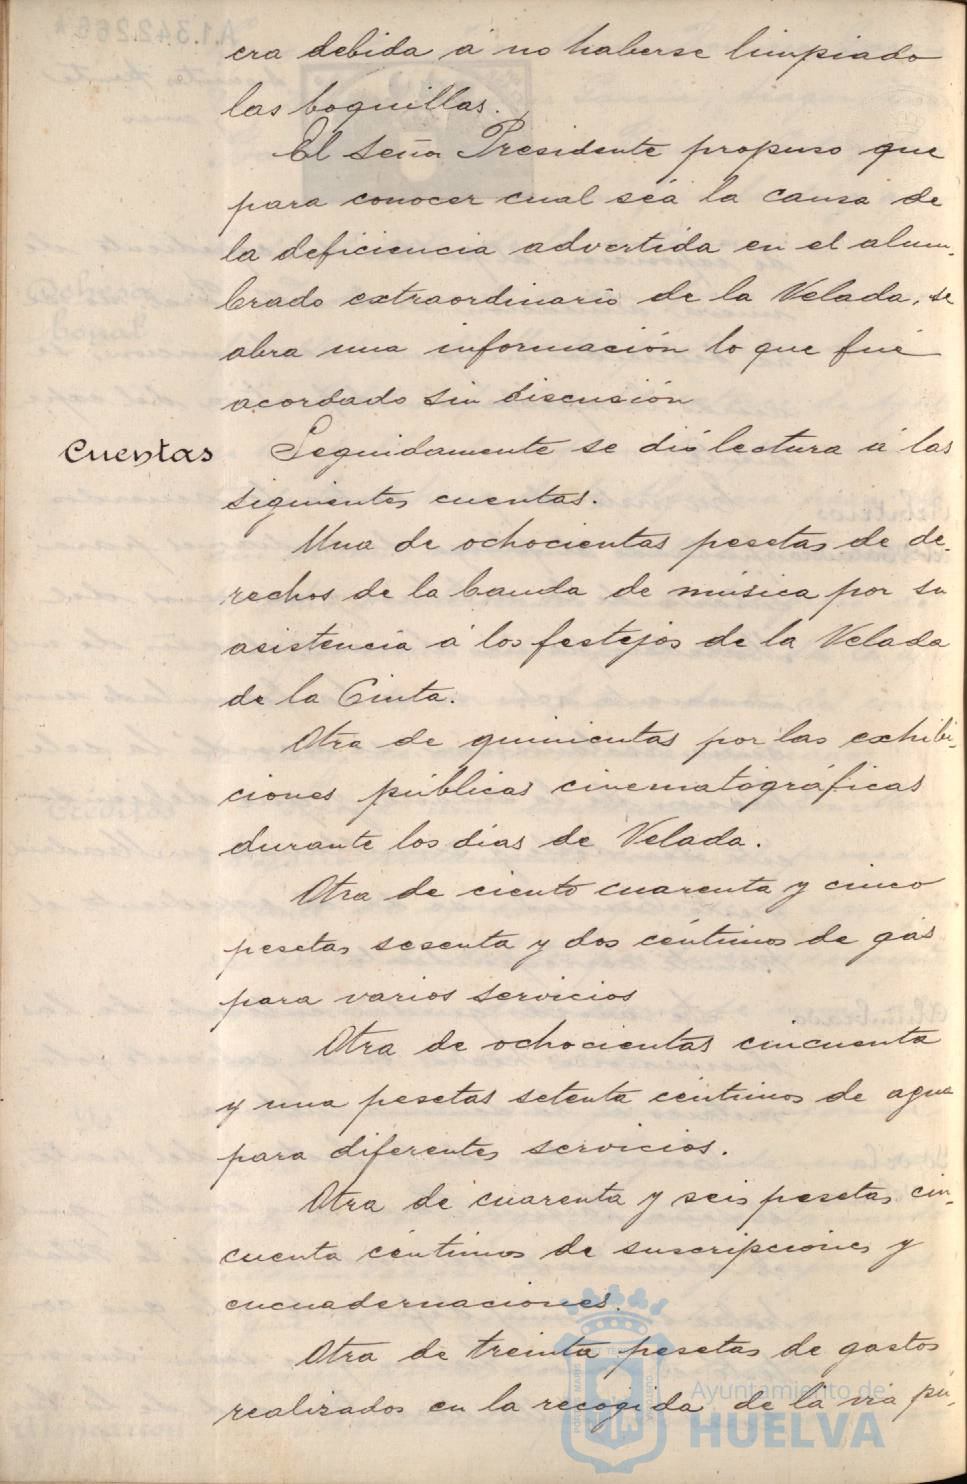 era debida á no haberse limpiado
las boquillas.
El Señor Presidente propuso que
para conocer cual séa la causa de
la deficiencia advertida en el alum-
brado extraordinario de la Velada, se
abra una información lo que fué
acordado sin discusión
Cuentas
Seguidamente se dió lectura á las
siguientes cuentas.
Una de ochocientas pesetas de de-
rechos de la banda de música por su
asistencia á los festejos de la Velada
de la Cinta.
Otra de quinientas por las exhibi-
ciones públicas cinematográficas
durante los días de Velada.
Otra de ciento cuarenta y cinco
pesetas sesenta y dos céntimos de gás
para varios servicios
Otra de ochocientas cincuenta
y una pesetas setenta céntimos de agua
para diferentes servicios.
Otra de cuarenta y seis pesetas cin-
cuenta céntimos de suscripciones y
encuadernaciones.
Otra de treinta pesetas de gastos
realizados en la recogida de la via pú-
Ayuntamiento de
HUELVA